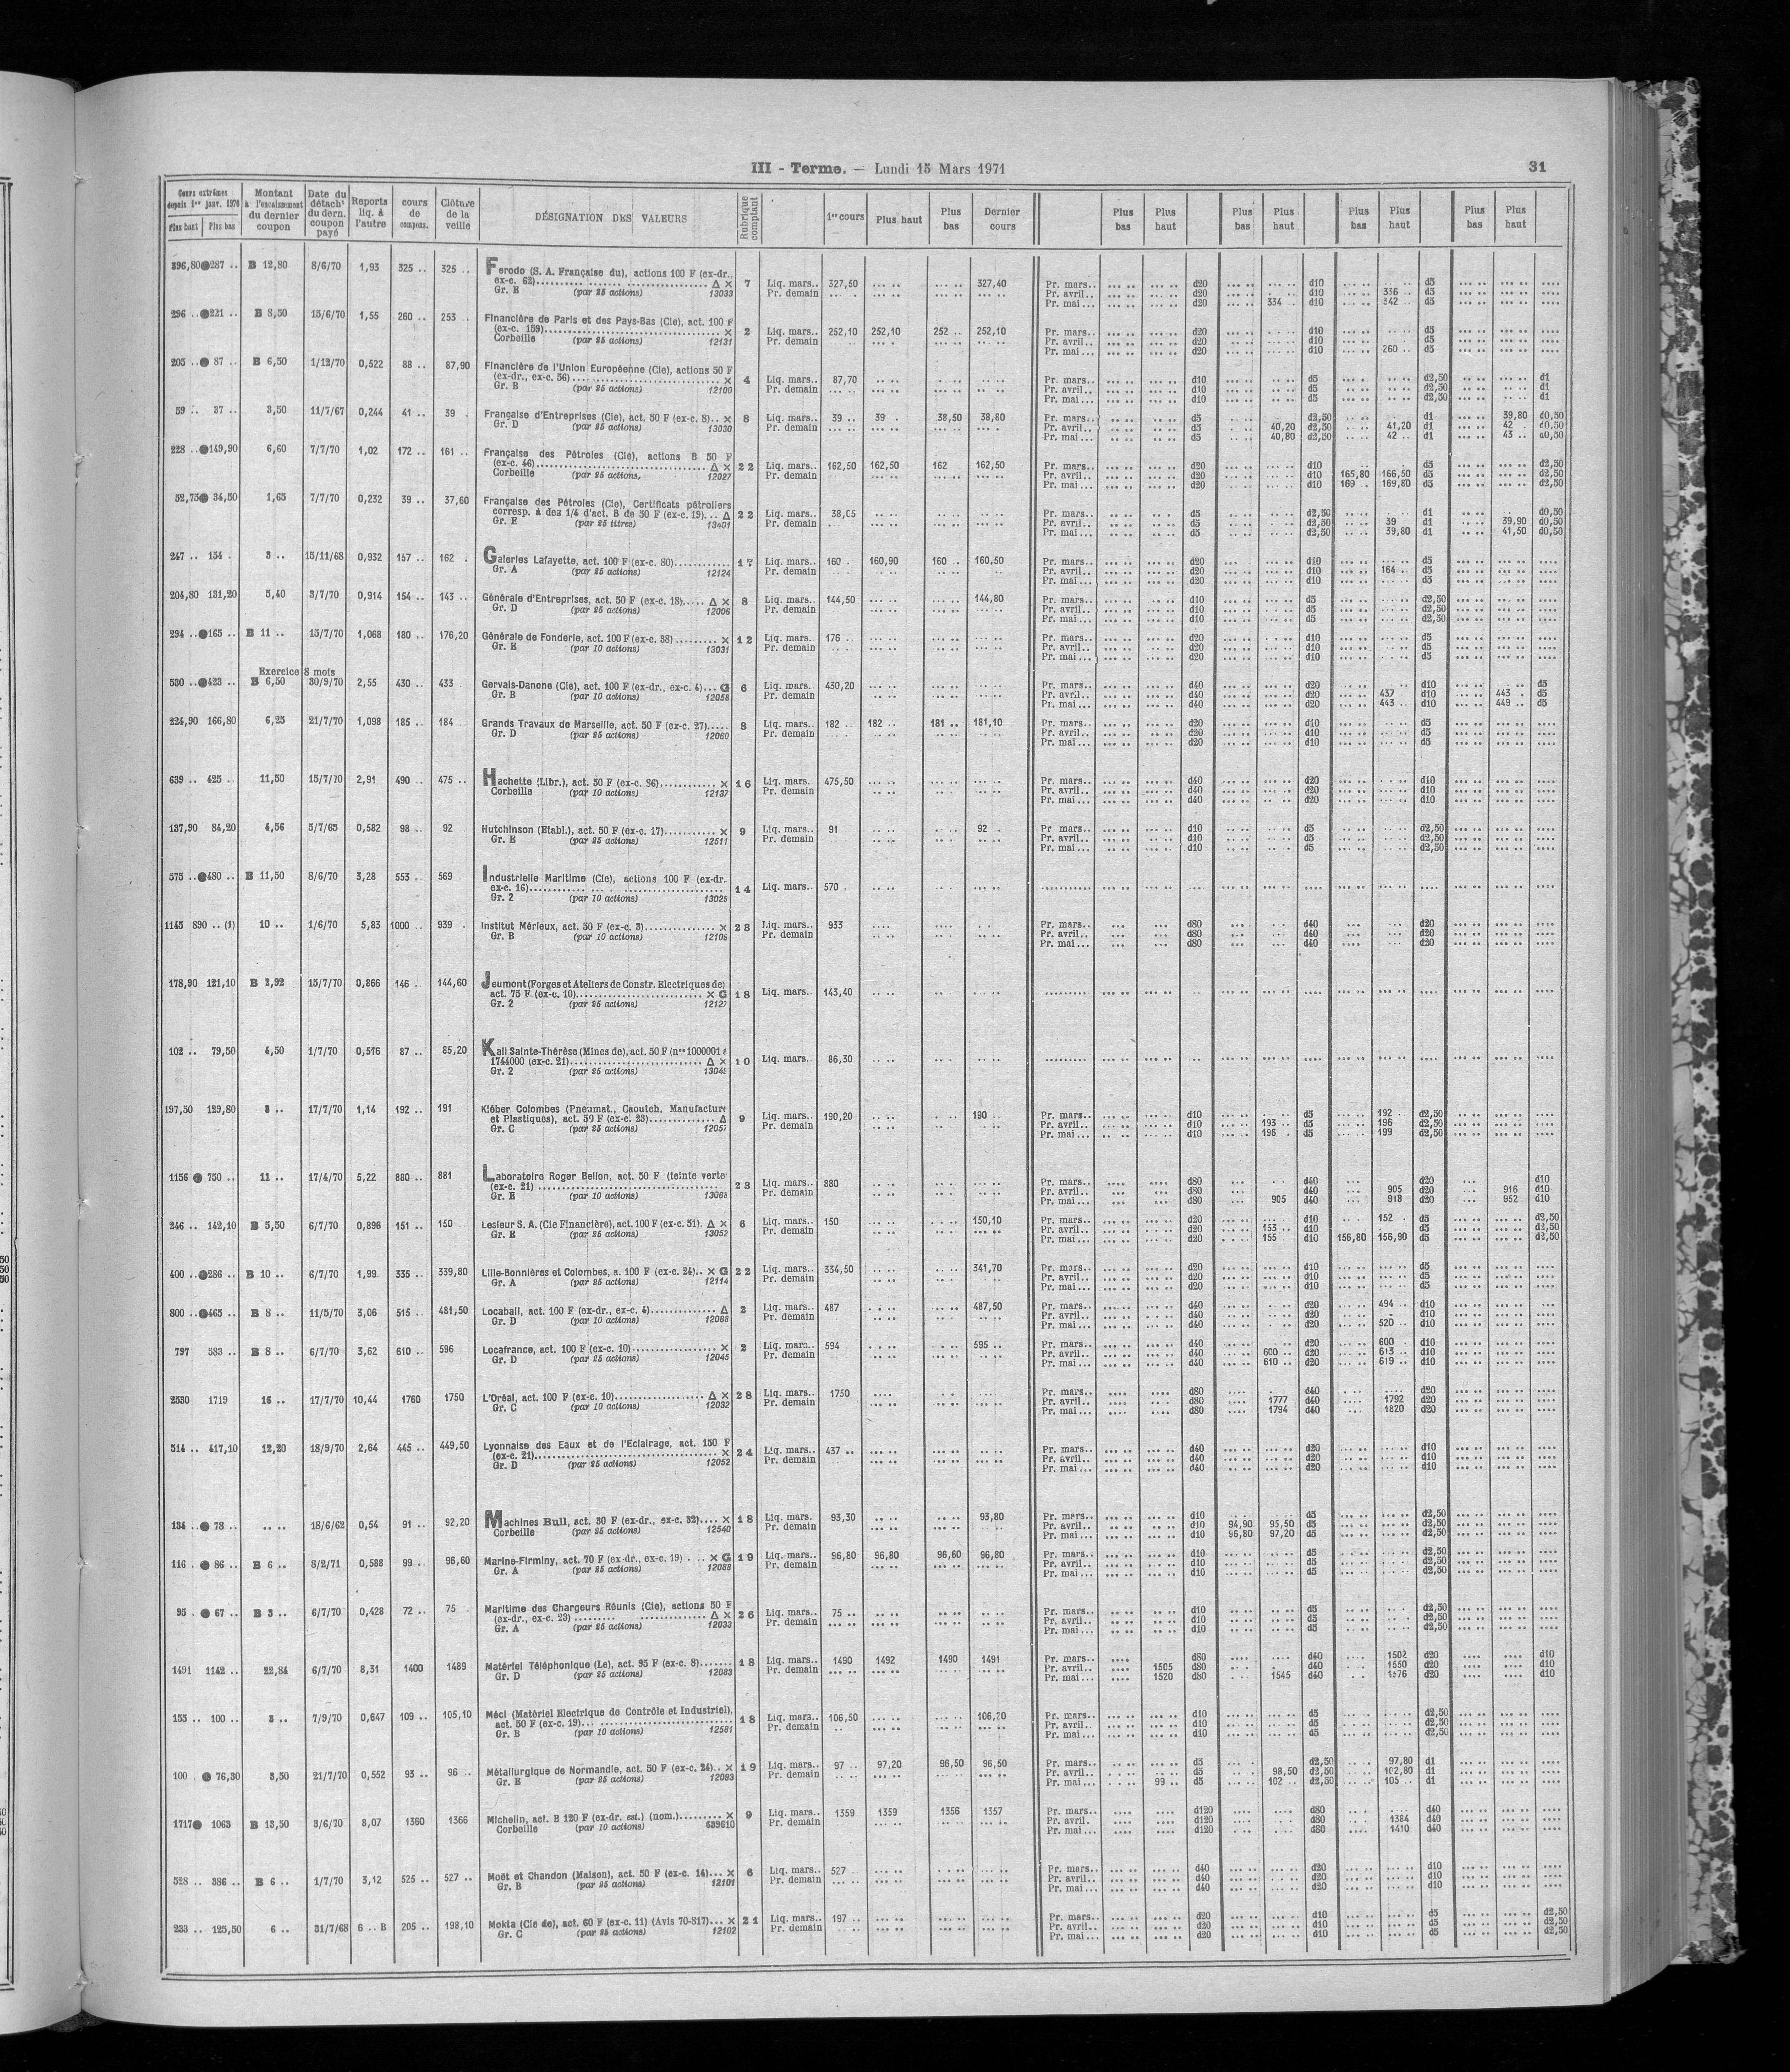 III - Terme. — Lundi 15 Mars 1971
31
Cours extrêmes depuis 1er janv. 1970
Plus haut Plus bas
Montant à l'encaissement du dernier coupon
Date du détacht du dern. coupon payé
Reports liq. à l'autre
cours de compens.
Clôture de la veille
DÉSIGNATION DES VALEURS
Rubrique comptant
1er cours
Plus haut
Plus bas
Dernier cours
Plus bas
Plus haut
Plus bas
Plus haut
Plus bas
Plus haut
Plus bas
Plus haut
396,80 ● 287 .. B 12,80 8/6/70 1,93 325 .. 325 .. Ferodo (S. A. Française du), actions 100 F (ex-dr.. ex-c. 62) Δ × 7 Liq. mars.. 327,50 327,40 Pr. mars.. d20 d10 d5
Gr. E (par 25 actions) 13033 Pr. demain Pr. avril.. d20 d10 336 d5
Pr. mai... d20 334 .. d10 342 .. d5
296 .. ● 221 .. B 8,50 15/6/70 1,55 260 .. 253 . Financière de Paris et des Pays-Bas (Cie), act. 100 F (ex-c. 159) × 2 Liq. mars.. 252,10 252,10 252 .. 252,10 Pr. mars.. d20 d10 d5
Corbeille (par 25 actions) 12131 Pr. demain Pr. avril.. d20 d10 d5
Pr. mai... d20 d10 260 .. d5
205 .. ● 87 .. B 6,50 1/12/70 0,522 88 .. 87,90 Financière de l'Union Européenne (Cie), actions 50 F (ex-dr., ex-c. 56) × 4 Liq. mars.. 87,70 Pr. mars.. d10 d5 d2,50 d1
Gr. B (par 25 actions) 12100 Pr. demain Pr. avril.. d10 d5 d2,50 d1
Pr. mai... d10 d5 d2,50 d1
59 .. 37 .. 3,50 11/7/67 0,244 41 .. 39 . Française d'Entreprises (Cie), act. 50 F (ex-c. 8).. × 8 Liq. mars.. 39 .. 39 . 38,50 38,80 Pr. mars.. d5 d2,50 d1 39,80 d0,50
Gr. D (par 25 actions) 13030 Pr. demain Pr. avril.. d5 40,20 d2,50 41,20 d1 42 . d0,50
Pr. mai... d5 40,80 d2,50 42 .. d1 43 .. d0,50
228 .. ● 149,90 6,60 7/7/70 1,02 172 .. 161 .. Française des Pétroles (Cie), actions B 50 F (ex-c. 46) Δ × 22 Liq. mars.. 162,50 162,50 162 162,50 Pr. mars.. d20 d10 d5 d2,50
Corbeille (par 25 actions, 12027 Pr. demain Pr. avril.. d20 d10 165,80 166,50 d5 d2,50
Pr. mai... d20 d10 169 . 169,80 d5 d2,50
52,75 ● 34,50 1,65 7/7/70 0,232 39 .. 37,60 Française des Pétroles (Cie), Certificats pétroliers corresp. à des 1/4 d'act. B de 50 F (ex-c. 19)... Δ 22 Liq. mars.. 38,05 Pr. mars.. d5 d2,50 d1 d0,50
Gr. E (par 25 titres) 13401 Pr. demain Pr. avril.. d5 d2,50 39 d1 39,90 d0,50
Pr. mai... d5 d2,50 39,80 d1 41,50 d0,50
247 .. 154 . 3 .. 15/11/68 0,932 157 .. 162 . Galeries Lafayette, act. 100 F (ex-c. 80) 17 Liq. mars.. 160 . 160,90 160 .. 160,50 Pr. mars.. d20 d10 d5
Gr. A (par 25 actions) 12124 Pr. demain Pr. avril.. d20 d10 164 .. d5
Pr. mai... d20 d10 d5
204,80 131,20 5,40 3/7/70 0,914 154 .. 143 .. Générale d'Entreprises, act. 50 F (ex-c. 18)..... Δ × 8 Liq. mars.. 144,50 144,80 Pr. mars.. d10 d5 d2,50
Gr. D (par 25 actions) 12006 Pr. demain Pr. avril.. d10 d5 d2,50
Pr. mai... d10 d5 d2,50
294 .. ● 165 .. B 11 .. 15/7/70 1,068 180 .. 176,20 Générale de Fonderie, act. 100 F (ex-c. 38) × 12 Liq. mars. 176 . Pr. mars.. d20 d10 d5
Gr. E (par 10 actions) 13031 Pr. demain Pr. avril.. d20 d10 d5
Pr. mai... d20 d10 d5
Exercice 8 mois
530 .. ● 423 .. B 6,50 30/9/70 2,55 430 .. 433 Gervais-Danone (Cie), act. 100 F (ex-dr., ex-c. 4)... G 6 Liq. mars. 430,20 Pr. mars.. d40 d20 d10 d5
Gr. B (par 10 actions) 12058 Pr. demain Pr. avril.. d40 d20 437 d10 443 . d5
Pr. mai... d40 d20 443 .. d10 449 .. d5
224,90 166,80 6,25 21/7/70 1,098 185 .. 184 Grands Travaux de Marseille, act. 50 F (ex-c. 27)..... 8 Liq. mars.. 182 .. 182 .. 181 .. 181,10 Pr. mars.. d20 d10 d5
Gr. D (par 25 actions) 12060 Pr. demain Pr. avril.. d20 d10 d5
Pr. mai... d20 d10 d5
639 .. 425 .. 11,50 15/7/70 2,91 490 .. 475 .. Hachette (Libr.), act. 50 F (ex-c. 86) × 16 Liq. mars. 475,50 Pr. mars.. d40 d20 d10
Corbeille (par 10 actions) 12137 Pr. demain Pr. avril.. d40 d20 d10
Pr. mai... d40 d20 d10
137,90 84,20 4,56 5/7/65 0,582 98 .. 92 Hutchinson (Etabl.), act. 50 F (ex-c. 17) × 9 Liq. mars.. 91 92 . Pr mars.. d10 d5 d2,50
Gr. E (par 25 actions) 12511 Pr. demain Pr. avril.. d10 d5 d2,50
Pr. mai... d10 d5 d2,50
575 .. ● 480 .. B 11,50 8/6/70 3,28 553 .. 569 Industrielle Maritime (Cie), actions 100 F (ex-dr. ex-c. 16) 14 Liq. mars.. 570 .
Gr. 2 (par 10 actions) 13028
1145 890 .. (1) 10 .. 1/6/70 5,83 1000 .. 939 . Institut Mérieux, act. 50 F (ex-c. 3) × 23 Liq. mars.. 933 Pr. mars.. d80 d40 d20
Gr. B (par 10 actions) 12108 Pr. demain Pr. avril.. d80 d40 d20
Pr. mai... d80 d40 d20
178,90 121,10 B 2,92 15/7/70 0,866 146 .. 144,60 Jeumont (Forges et Ateliers de Constr. Electriques de) act. 75 F (ex-c. 10) × G 18 Liq. mars.. 143,40
Gr. 2 (par 25 actions) 12127
102 .. 79,50 4,50 1/7/70 0,516 87 .. 85,20 Kali Sainte-Thérèse (Mines de), act. 50 F (nos 1000001 à 1744000 (ex-c. 21) Δ × 10 Liq. mars. 86,30
Gr. 2 (par 25 actions) 13048
197,50 129,80 3 .. 17/7/70 1,14 192 .. 191 Kléber Colombes (Pneumat., Caoutch. Manufacture et Plastiques), act. 50 F (ex-c. 23) Δ 9 Liq. mars.. 190,20 190 .. Pr. mars.. d10 d5 192 . d2,50
Gr. C (par 25 actions) 12057 Pr. demain Pr. avril.. d10 193 .. d5 196 d2,50
Pr. mai... d10 196 . d5 199 d2,50
1156 ● 750 .. 11 .. 17/4/70 5,22 880 .. 881 Laboratoire Roger Bellon, act. 50 F (teinte verte (ex-c. 21) 23 Liq. mars.. 880 Pr. mars.. d80 d40 d20 d10
Gr. E (par 10 actions) 13068 Pr. demain Pr. avril.. d80 d40 905 d20 916 d10
Pr. mai... d80 905 d40 918 d20 952 d10
246 .. 142,10 B 5,50 6/7/70 0,896 151 .. 150 Lesieur S. A. (Cie Financière), act. 100 F (ex-c. 51). Δ × 6 Liq. mars.. 150 150,10 Pr. mars.. d20 d10 152 . d5 d2,50
Gr. E (par 25 actions) 13052 Pr. demain Pr. avril.. d20 153 .. d10 d5 d2,50
Pr. mai... d20 155 d10 156,80 156,90 d5 d2,50
400 .. ● 286 .. B 10 .. 6/7/70 1,99 335 .. 339,80 Lille-Bonnières et Colombes, a. 100 F (ex-c. 24).. × G 22 Liq. mars.. 334,50 341,70 Pr. mars.. d20 d10 d5
Gr. A (par 25 actions) 12114 Pr. demain Pr. avril.. d20 d10 d5
Pr. mai... d20 d10 d5
800 .. ● 465 .. B 8 .. 11/5/70 3,06 515 .. 481,50 Locabail, act. 100 F (ex-dr., ex-c. 4) Δ 2 Liq. mars.. 487 487,50 Pr. mars.. d40 d20 494 .. d10
Gr. D (par 10 actions) 12088 Pr. demain Pr. avril.. d40 d20 d10
Pr. mai... d40 d20 520 .. d10
797 583 .. B 8 .. 6/7/70 3,62 610 .. 596 Locafrance, act. 100 F (ex-c. 10) × 2 Liq. mars.. 594 595 .. Pr. mars.. d40 d20 600 . d10
Gr. D (par 25 actions) 12045 Pr. demain Pr. avril.. d40 600 .. d20 613 .. d10
Pr. mai... d40 610 .. d20 619 .. d10
2530 1719 16 .. 17/7/70 10,44 1760 1750 L'Oréal, act. 100 F (ex-c. 10) Δ × 28 Liq. mars.. 1750 Pr. mars.. d80 d40 d20
Gr. C (par 10 actions) 12032 Pr. demain Pr. avril.. d80 1777 d40 1792 d20
Pr. mai... d80 1794 d40 1820 d20
514 .. 417,10 12,20 18/9/70 2,64 445 .. 449,50 Lyonnaise des Eaux et de l'Eclairage, act. 150 F (ex-c. 21) × 24 Liq. mars.. 437 .. Pr. mars.. d40 d20 d10
Gr. D (par 25 actions) 12052 Pr. demain Pr. avril.. d40 d20 d10
Pr. mai... d40 d20 d10
134 .. ● 78 .. 18/6/62 0,54 91 .. 92,20 Machines Bull, act. 30 F (ex-dr., ex-c. 32).... × 18 Liq. mars. 93,30 93,80 Pr. mars.. d10 d5 d2,50
Corbeille (par 25 actions) 12540 Pr. demain Pr. avril.. d10 94,90 95,50 d5 d2,50
Pr. mai... d10 96,80 97,20 d5 d2,50
116 . ● 86 .. B 6 .. 8/2/71 0,588 99 .. 96,60 Marine-Firminy, act. 70 F (ex-dr., ex-c. 19) × G 19 Liq. mars.. 96,80 96,80 96,60 96,80 Pr. mars.. d10 d5 d2,50
Gr. A (par 25 actions) 12088 Pr. demain Pr. avril.. d10 d5 d2,50
Pr. mai... d10 d5 d2,50
95 . ● 67 .. B 3 .. 6/7/70 0,428 72 .. 75 . Maritime des Chargeurs Réunis (Cie), actions 50 F (ex-dr., ex-c. 23) Δ × 26 Liq. mars.. 75 .. Pr. mars.. d10 d5 d2,50
Gr. A (par 25 actions) 12033 Pr. demain Pr. avril.. d10 d5 d2,50
Pr. mai... d10 d5 d2,50
1491 1142 .. 22,84 6/7/70 8,31 1400 1489 Matériel Téléphonique (Le), act. 95 F (ex-c. 8) 18 Liq. mars.. 1490 1492 1490 1491 Pr. mars.. d80 d40 1502 d20 d10
Gr. D (par 25 actions) 12083 Pr. demain Pr. avril.. 1505 d80 d40 1550 d20 d10
Pr. mai... 1520 d80 1545 d40 1576 d20 d10
155 .. 100 .. 3 .. 7/9/70 0,647 109 .. 105,10 Méci (Matériel Electrique de Contrôle et Industriel), act. 50 F (ex-c. 19) 18 Liq. mars.. 106,50 106,20 Pr. mars.. d10 d5 d2,50
Gr. B (par 10 actions) 12581 Pr. demain Pr. avril.. d10 d5 d2,50
Pr. mai... d10 d5 d2,50
100 . ● 76,30 3,50 21/7/70 0,552 93 .. 96 .. Métallurgique de Normandie, act. 50 F (ex-c. 24).. × 19 Liq. mars.. 97 .. 97,20 96,50 96,50 Pr. mars.. d5 d2,50 97,80 d1
Gr. E (par 25 actions) 12093 Pr. demain Pr. avril.. d5 98,50 d2,50 102,80 d1
Pr. mai... 99 .. d5 102 .. d2,50 105 .. d1
1717 ● 1063 B 13,50 3/6/70 8,07 1360 1366 Michelin, act. B 120 F (ex-dr. est.) (nom.) × 9 Liq. mars.. 1359 1359 1356 1357 Pr. mars.. d120 d80 d40
Corbeille (par 10 actions) 639610 Pr. demain Pr. avril. d120 d80 1384 d40
Pr. mai... d120 d80 1410 d40
528 .. 386 .. B 6 .. 1/7/70 3,12 525 .. 527 .. Moët et Chandon (Maison), act. 50 F (ex-c. 14)... × 6 Liq. mars.. 527 . Pr. mars.. d40 d20 d10
Gr. B (par 25 actions) 12101 Pr. demain Pr. avril.. d40 d20 d10
Pr. mai... d40 d20 d10
233 .. 125,50 6 .. 31/7/68 6 .. B 205 .. 198,10 Mokta (Cie de), act. 60 F (ex-c. 11) (Avis 70-817)... × 21 Liq. mars.. 197 .. Pr. mars.. d20 d10 d5 d2,50
Gr. C (par 25 actions) 12102 Pr. demain Pr. avril.. d20 d10 d5 d2,50
Pr. mai... d20 d10 d5 d2,50